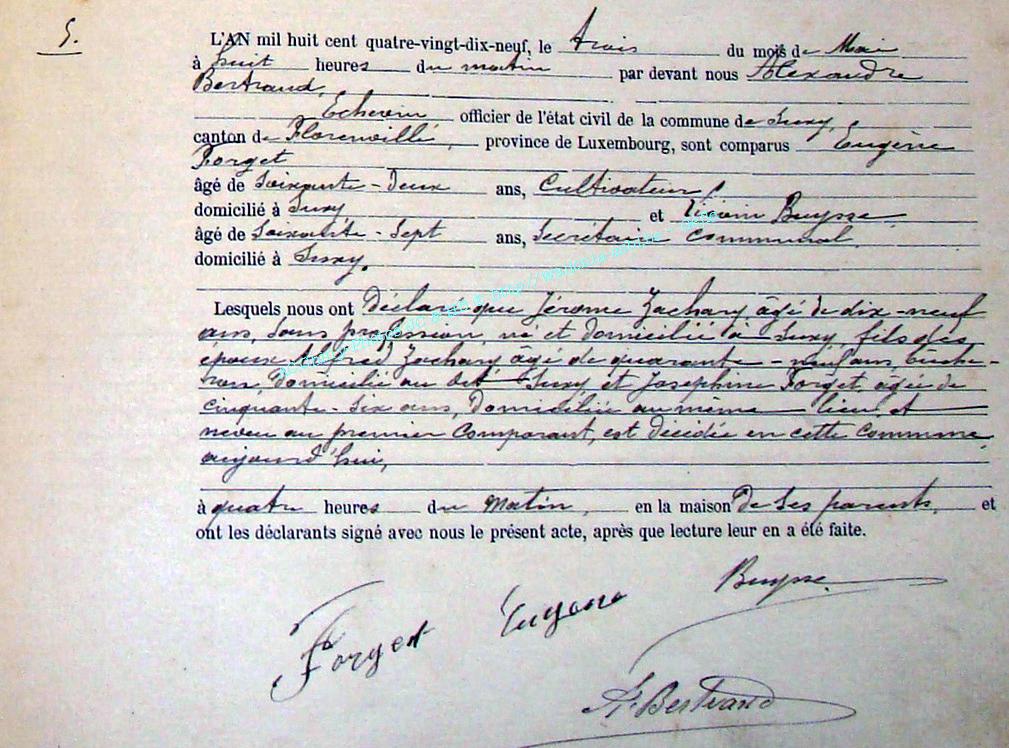 5.
L'AN mil huit cent quatre-vingt-dix-neuf, le trois du mois de Mai
à huit heures du matin par devant nous Alexandre
Bertrand,
Echevin officier de l'état civil de la commune de Suxy,
canton de Florenville, province de Luxembourg, sont comparus Eugène
Forget
âgé de Soixante-Deux ans, Cultivateur,
domicilié à Suxy et Buysse
âgé de Soixante-Sept ans, Secrétaire communal
domicilié à Suxy,
Lesquels nous ont déclaré que Jérome Zachary âgé de dix-neuf
ans, sans profession, né et domicilié à Suxy, fils des
époux Alfred Zachary âgé de quarante-neuf ans, bûche-
ron, domicilié au dit Suxy et Joséphine Forget, âgée de
cinquante-six ans, domiciliée au même lieu, et
neveu au premier comparant, est décédé en cette commune,
aujourd'hui,
à quatre heures du matin, en la maison de ses parents, et
ont les déclarants signé avec nous le présent acte, après que lecture leur en a été faite.
Forget Eugene Buysse
A. Bertrand